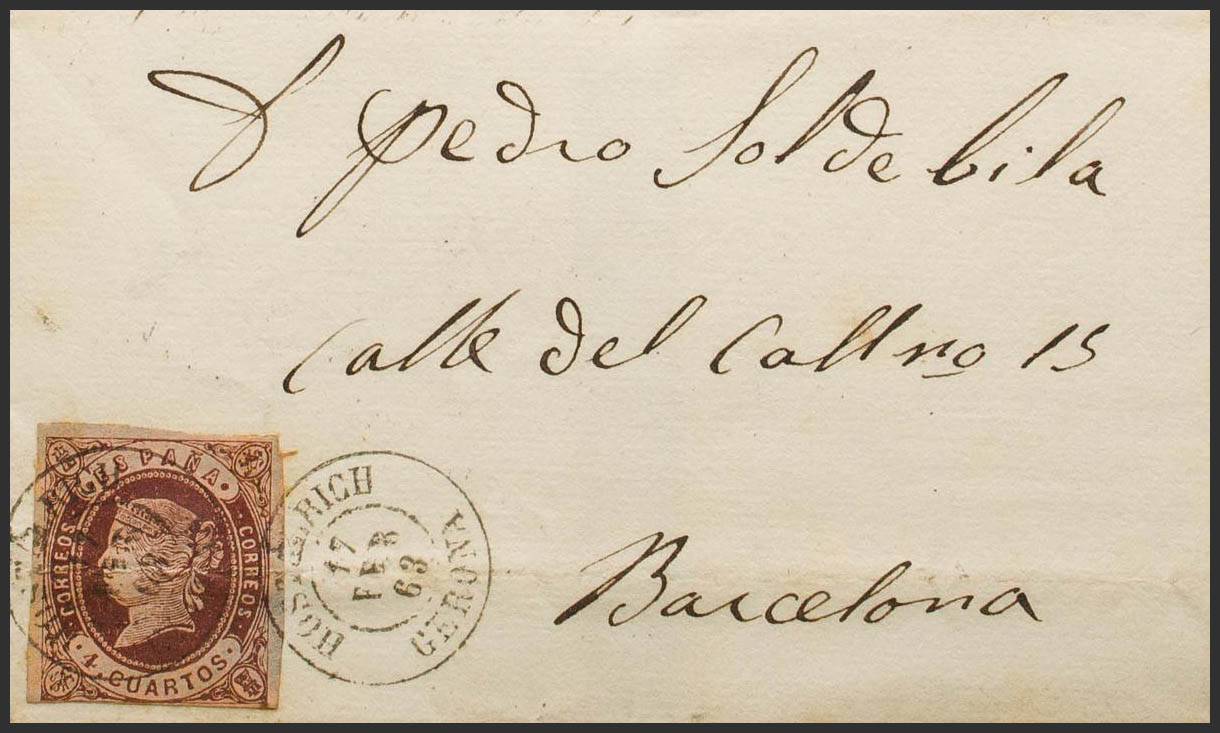 D pedro Sol de bila
Calle del Call no 15
Barcelona
ESPAÑA
CORREOS
CORREOS
4. CUARTOS.
HOSTALRICH
17
FEB
63
GERONA